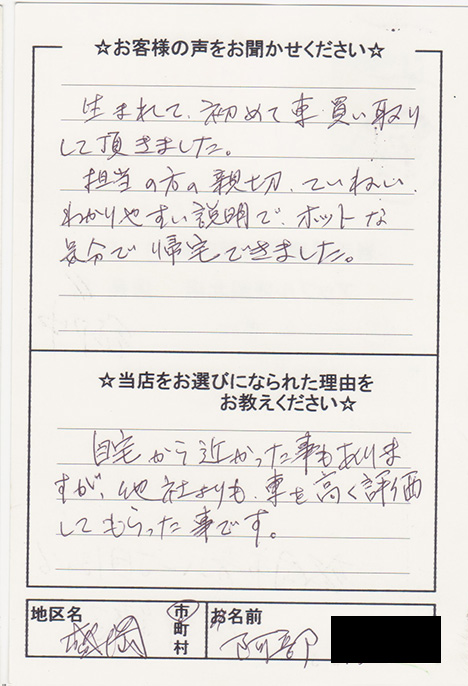 ☆お客様の声をお聞かせください☆
生まれて、初めて車買い取り
して頂きました。
担当の方の親切、ていねい、
わかりやすい説明で、ホットな
気分で帰宅できました。
☆当店をお選びになられた理由を
お教えください☆
自宅から近かった事もありま
すが、他社よりも、車を高く評価
してもらった事です。
地区名 盛岡 市町村 お名前 阿部